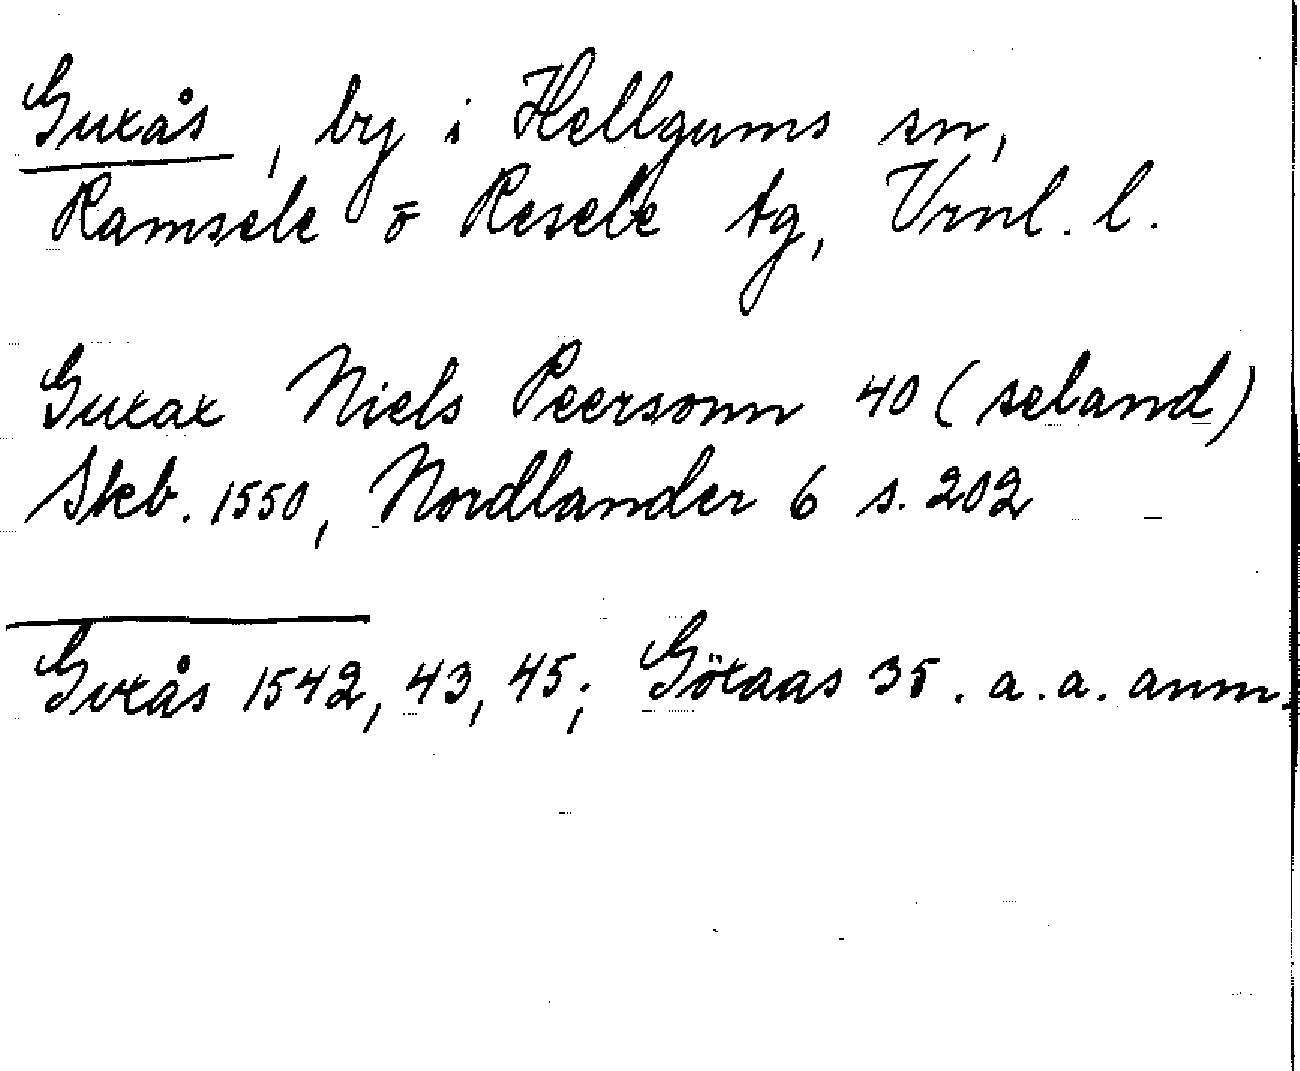 Guxås, by i Hellgums sn,
Ramsele o Resele tg, Vrnl. l.
Guxax Niels Peersonn 40 (seland)
Skb. 1550, Nordlander 6 s. 202
Gvxås 1542, 43, 45; Göxaas 35. a. a. anm.